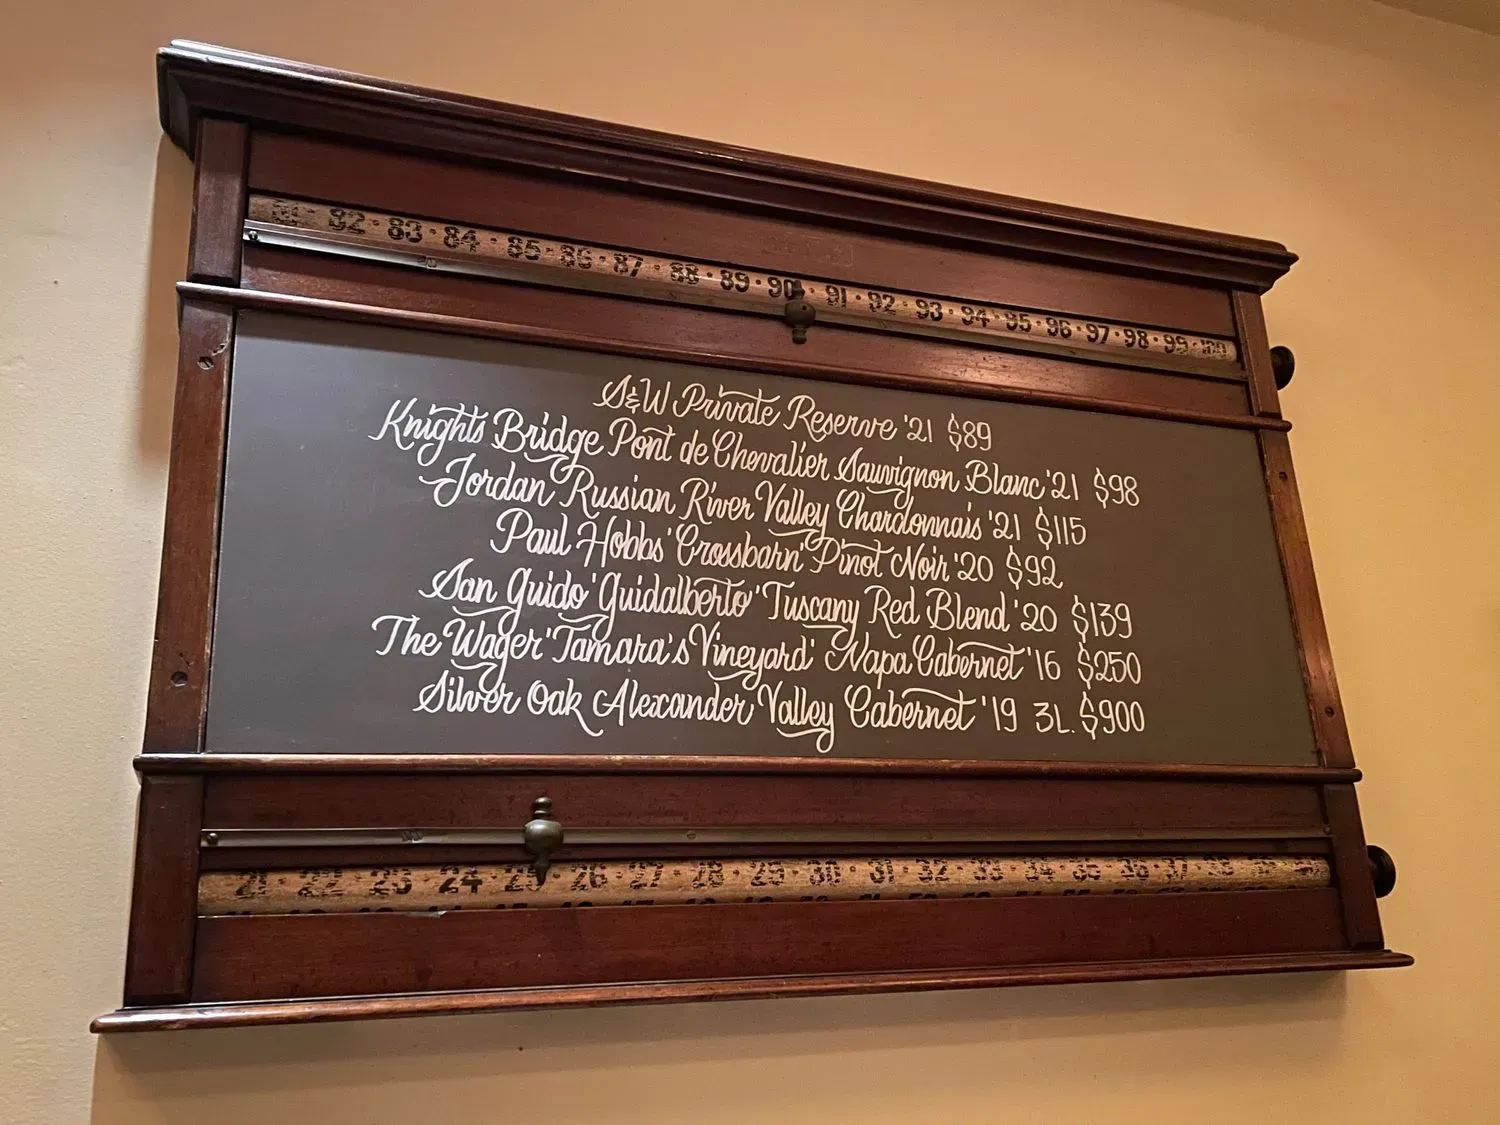 82 · 83 · 84 · 85 · 86 · 87 · 88 · 89 · 90 · 91 · 92 · 93 · 94 · 95 · 96 · 97 · 98 · 99 · 100
S&W Private Reserve '21 $89
Knights Bridge Pont de Chevalier Sauvignon Blanc '21 $98
Jordan Russian River Valley Chardonnais '21 $115
Paul Hobbs 'Crossbarn' Pinot Noir '20 $92
San Guido 'Guidalberto' Tuscany Red Blend '20 $139
The Wager 'Tamara's Vineyard' Napa Cabernet '16 $250
Silver Oak Alexander Valley Cabernet '19 3L. $900
21 · 22 · 23 · 24 · 25 · 26 · 27 · 28 · 29 · 30 · 31 · 32 · 33 · 34 · 35 · 36 · 37 · 38 · 39